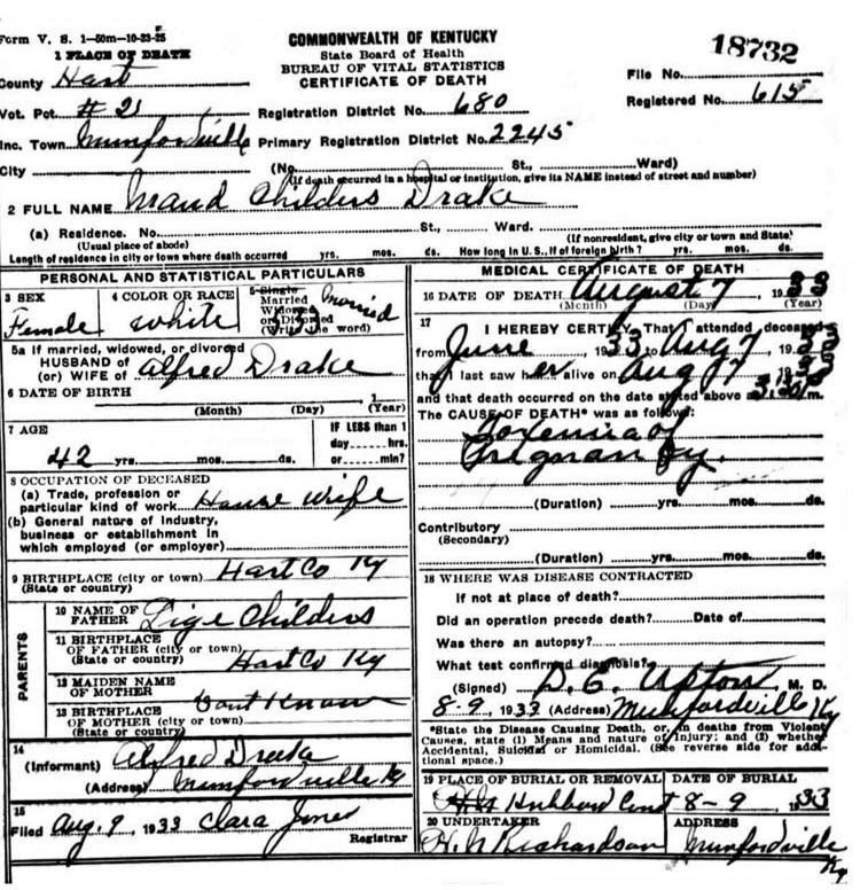 Form V. S. 1—50m—10-23-25
COMMONWEALTH OF KENTUCKY
State Board of Health
BUREAU OF VITAL STATISTICS
CERTIFICATE OF DEATH
18732
1 PLACE OF DEATH
File No.
County Hart
Registered No. 615
Vot. Pct. # 21 Registration District No. 680
Inc. Town Munfordville Primary Registration District No. 2245
City (No. St., Ward)
(If death occurred in a hospital or institution, give its NAME instead of street and number)
2 FULL NAME Maud Childers Drake
(a) Residence. No. St., Ward.
(Usual place of abode) (If nonresident, give city or town and State)
Length of residence in city or town where death occurred yrs. mos. ds. How long in U. S., if of foreign birth? yrs. mos. ds.
PERSONAL AND STATISTICAL PARTICULARS
3 SEX Female
4 COLOR OR RACE white
5 Single Married Widowed or Divorced (Write the word) Married
5a If married, widowed, or divorced
HUSBAND of
(or) WIFE of Alfred Drake
6 DATE OF BIRTH 1
(Month) (Day) (Year)
7 AGE
42 yrs. mos. ds.
IF LESS than 1
day hrs.
or min?
8 OCCUPATION OF DECEASED
(a) Trade, profession or
particular kind of work House Wife
(b) General nature of Industry,
business or establishment in
which employed (or employer)
9 BIRTHPLACE (city or town) Hart Co Ky
(State or country)
PARENTS
10 NAME OF
FATHER Lige Childers
11 BIRTHPLACE
OF FATHER (city or town)
(State or country) Hart Co Ky
12 MAIDEN NAME
OF MOTHER
Dont Know
13 BIRTHPLACE
OF MOTHER (city or town)
(State or country)
14
(Informant) Alfred Drake
(Address) Munfordville Ky
15
Filed Aug. 9, 1933 Clara Jones
Registrar
MEDICAL CERTIFICATE OF DEATH
16 DATE OF DEATH August 7, 1933
(Month) (Day) (Year)
17 I HEREBY CERTIFY, That I attended deceased
from June, 1933 to Aug 7, 1933
that I last saw her alive on Aug 7 1933
and that death occurred on the date stated above at 3:30 m.
The CAUSE OF DEATH* was as follows:
Toxemia of
Pregnancy.
(Duration) yrs. mos. ds.
Contributory
(Secondary)
(Duration) yrs. mos. ds.
18 WHERE WAS DISEASE CONTRACTED
If not at place of death?
Did an operation precede death? Date of
Was there an autopsy?
What test confirmed diagnosis?
(Signed) D. E. Upton, M. D.
8-9, 1933 (Address) Munfordville Ky
*State the Disease Causing Death, or, in deaths from Violent
Causes, state (1) Means and nature of Injury; and (2) whether
Accidental, Suicidal or Homicidal. (See reverse side for addi-
tional space.)
19 PLACE OF BURIAL OR REMOVAL
Hubbard Cem
DATE OF BURIAL
8-9 1933
20 UNDERTAKER
H. N Richardson
ADDRESS
Munfordville
Ky